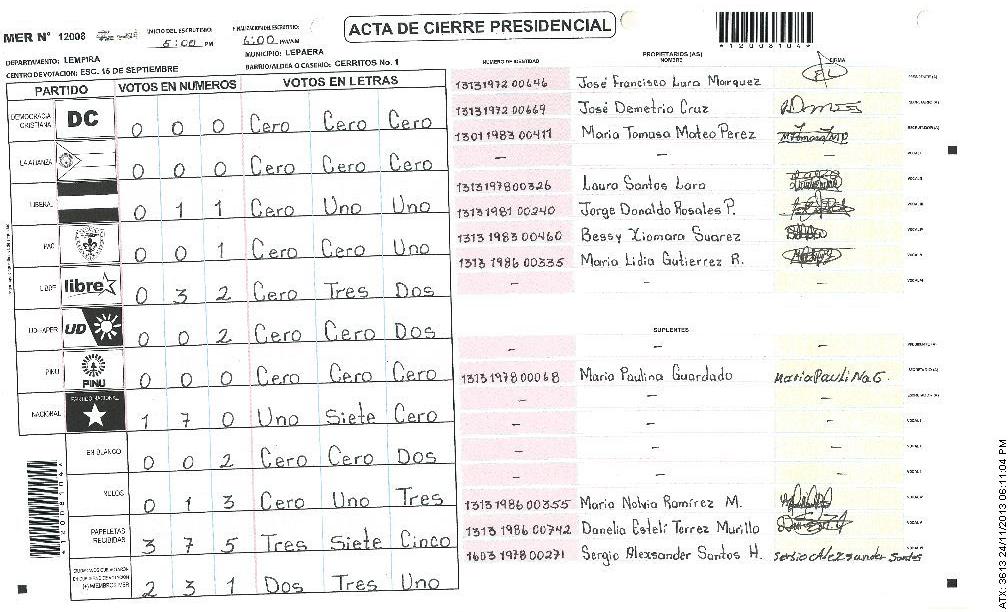 ACTA DE CIERRE PRESIDENCIAL
MER N° 12008
INICIO DEL ESCRUTINIO:
5:00 PM
FINALIZACION DEL ESCRUTINIO:
6:00 PM/AM
*12008104*
DEPARTAMENTO: LEMPIRA
MUNICIPIO: LEPAERA
CENTRO DE VOTACION: ESC. 15 DE SEPTIEMBRE
BARRIO/ALDEA O CASERIO: CERRITOS No. 1
PARTIDO VOTOS EN NUMEROS VOTOS EN LETRAS
DEMOCRACIA CRISTIANA DC 0 0 0 Cero Cero Cero
LA ALIANZA 0 0 0 Cero Cero Cero
LIBERAL 0 1 1 Cero Uno Uno
PAC 0 0 1 Cero Cero Uno
LIBRE libre 0 3 2 Cero Tres Dos
UD-FAPER UD 0 0 2 Cero Cero Dos
PINU PINU 0 0 0 Cero Cero Cero
NACIONAL PARTIDO NACIONAL 1 7 0 Uno Siete Cero
EN BLANCO 0 0 2 Cero Cero Dos
NULOS 0 1 3 Cero Uno Tres
PAPELETAS RECIBIDAS 3 7 5 Tres Siete Cinco
2 3 1 Dos Tres Uno
NUMERO DE IDENTIDAD PROPIETARIOS (AS) NOMBRE FIRMA
1313197200646 José Francisco Lara Marquez PRESIDENTE (A)
1313197200669 José Demetrio Cruz SECRETARIO (A)
1301198300411 Maria Tomasa Mateo Perez ESCRUTADOR (A)
— — — VOCAL I
1313197800326 Laura Santos Lara VOCAL II
1313198100240 Jorge Donaldo Rosales P. VOCAL III
1313198300460 Bessy Xiomara Suarez VOCAL IV
1313198600335 Maria Lidia Gutierrez R. VOCAL V
— — — VOCAL VI
SUPLENTES
— — — PRESIDENTE (A)
1313197800068 Maria Paulina Guardado Maria Pauli Na G. SECRETARIO (A)
— — — ESCRUTADOR (A)
— — — VOCAL I
— — — VOCAL II
— — —
1313198600355 Maria Nolvia Ramírez M.
1313198600742 Danelia Estelí Torrez Murillo
1603197800271 Sergio Alexsander Santos H. Sergio Alezsander Santos
*12008104*
ATX: 3613 24/11/2013 06:11:04 PM